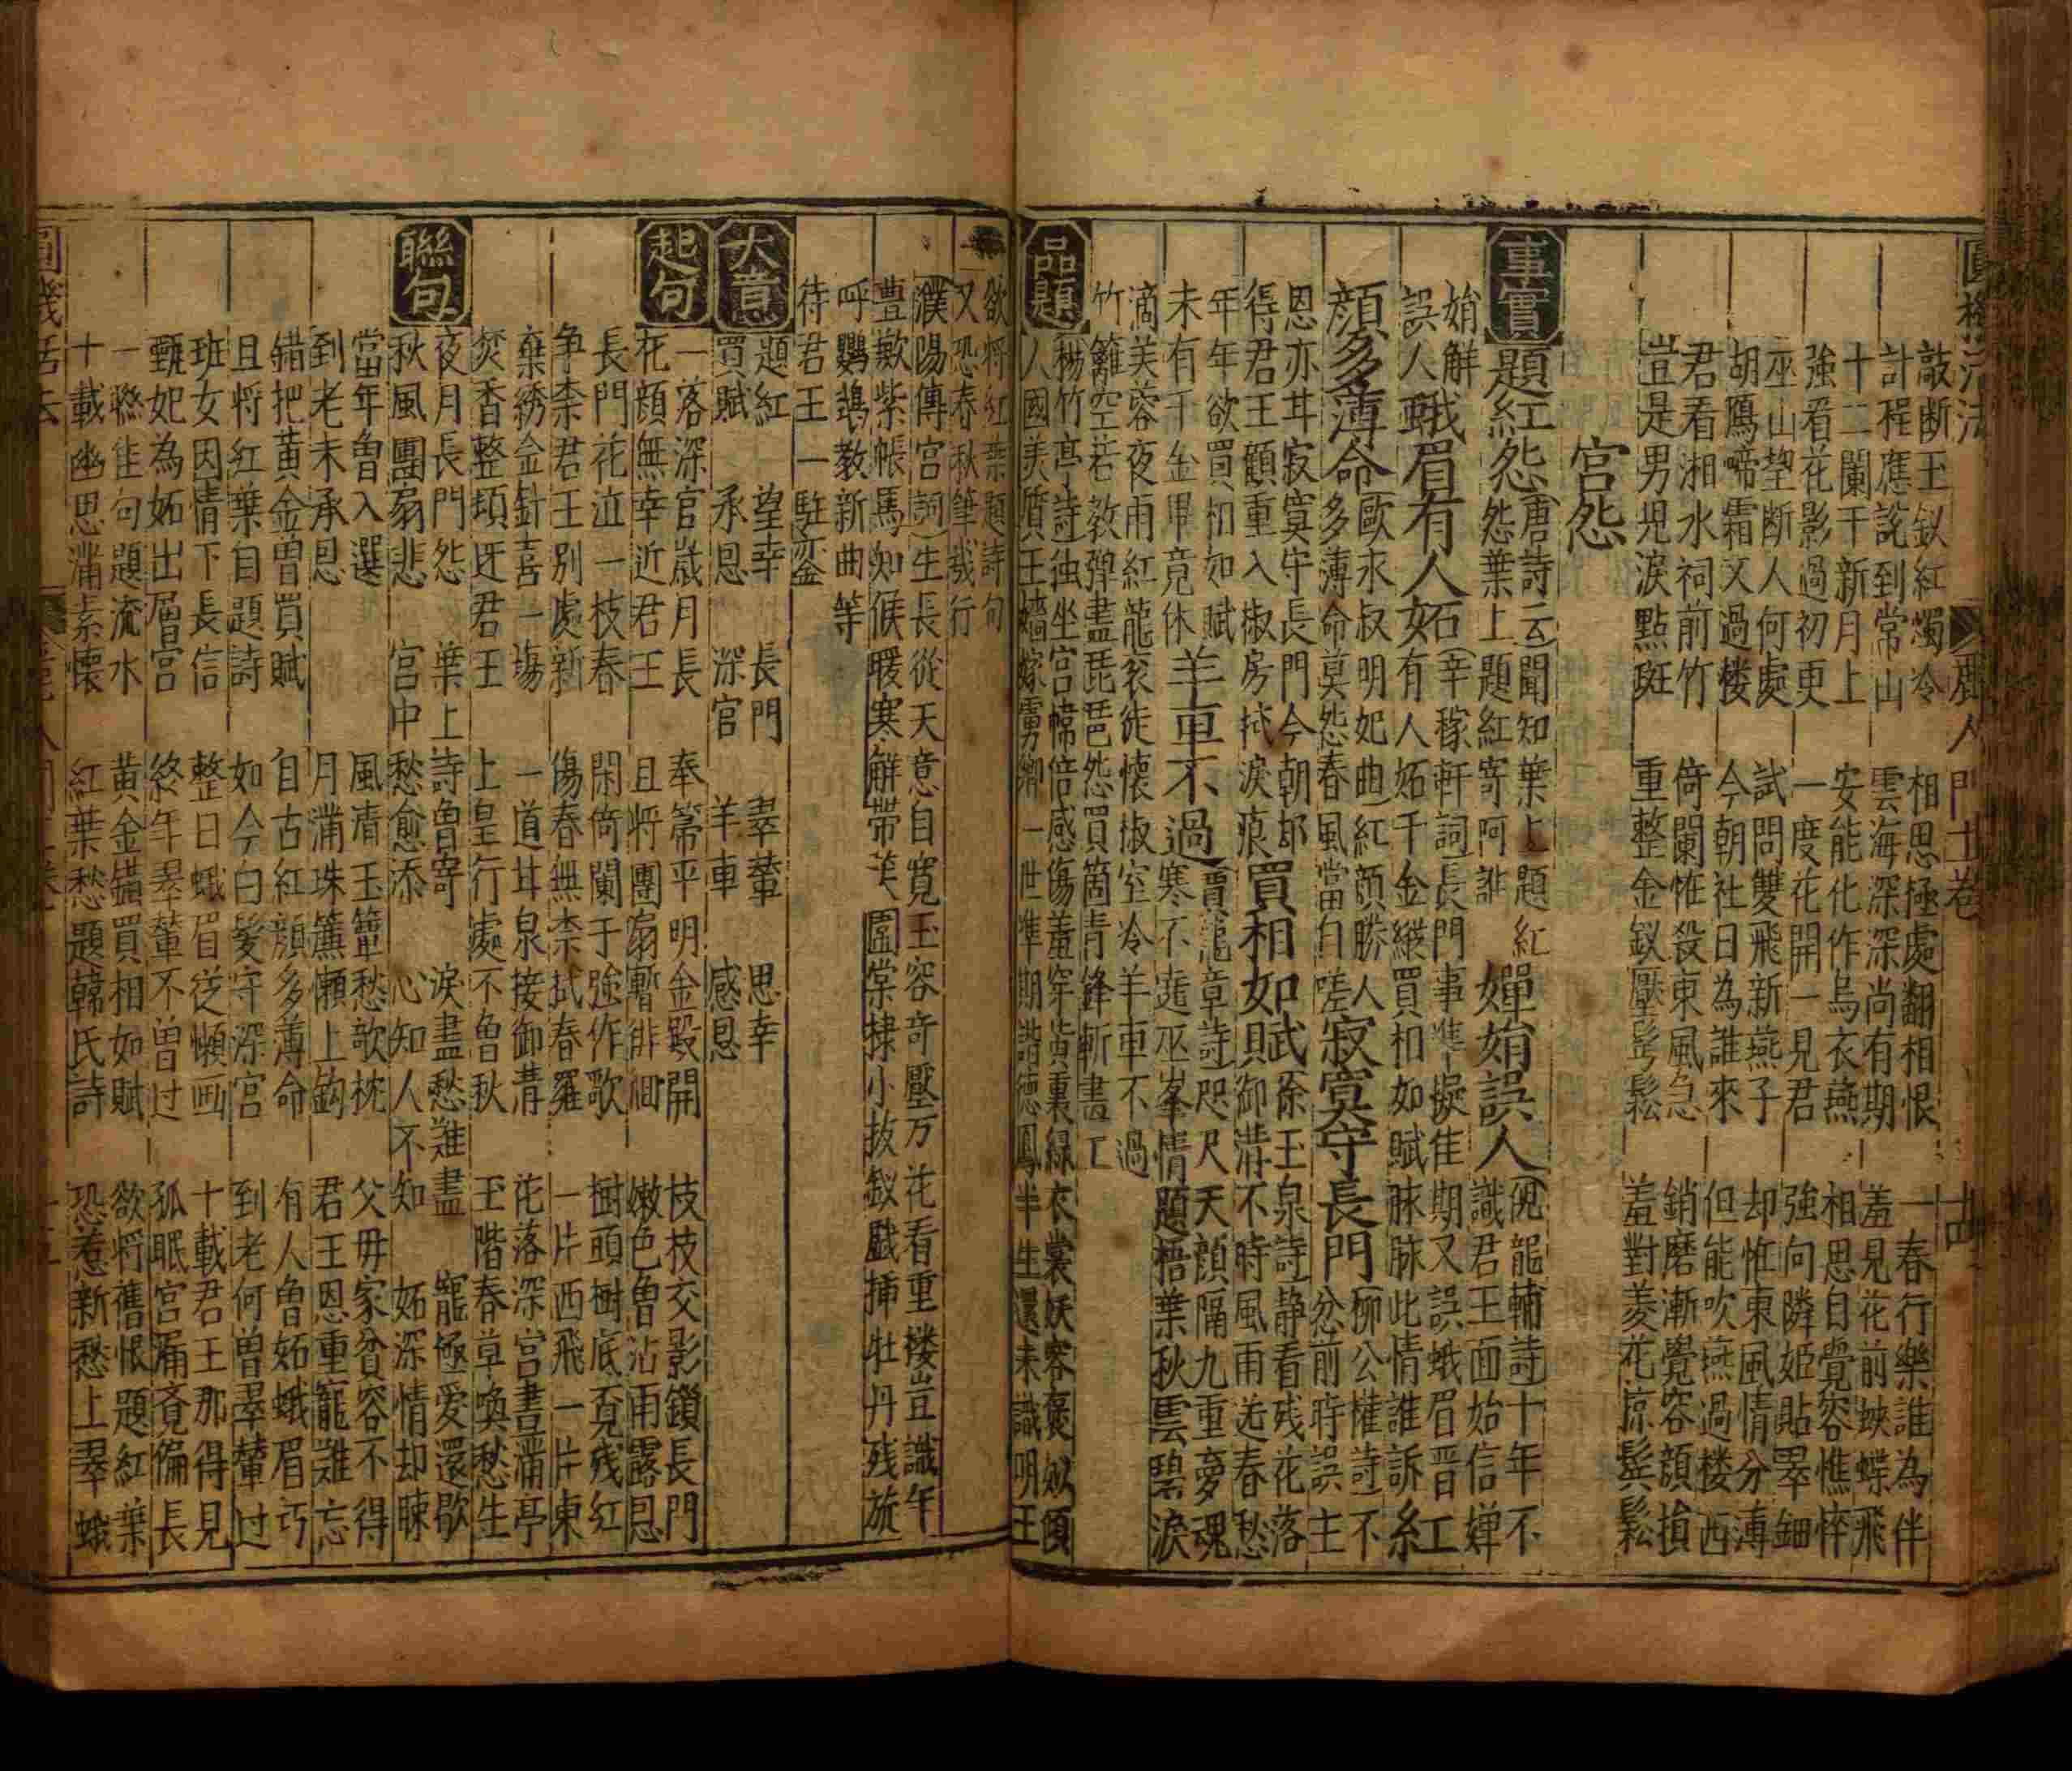 敲断玉釵紅燭冷　相思極處翻相恨　一春行樂誰為伴
計程應說到常山　雲海深深尚有期　羞見花前蛺蝶飛
十二闌干新月上　安能化作烏衣燕　相思自覺容憔悴
強看花影過初更　一度花開一見君　強向隣姬貼翠鈿
巫山望断人何處　試問雙飛新燕子　却恠東風情分薄
胡鴈啼霜又過楼　今朝社日為誰來　但能吹燕過楼西
君看湘水祠前竹　倚闌恠殺東風急　銷磨漸覺容顔損
豈是男児淚點斑　重整金釵壓髩鬆　羞對菱花掠鬓鬆
宮怨
事實
題紅怨
唐詩云聞知葉上題紅
怨葉上題紅寄阿誰
嬋娟誤人
倪龍輔詩十年不
識君王面始信嬋
娟解
誤人
蛾眉有人妬
辛稼軒詞長門事準擬佳期又誤蛾眉曾
有人妬千金縱買相如賦脉脉此情誰訴
紅
顔多薄命
歐永叔明妃曲紅顔勝人
多薄命莫怨春風當自嗟
寂寞守長門
柳公權詩不
忿前時誤主
恩亦甘寂寞守長門今朝却
得君王顧重入椒房拭淚痕
買相如賦
徐玉泉詩静看残花落
御溝不時風雨送春愁
年年欲買相如賦
未有千金畢竟休
羊車不過
章詩咫尺天顔隔九重夢魂
寒不遶巫峯情題梧葉秋雲碧淚
滴芙蓉夜雨紅龍衮徒懷椒室冷羊車不過
竹籬空若教彈盡琵琶怨買箇青鋒斬畫工
品題
楊竹亭詩独坐宮幃倍感傷羞穿黄裏緑衣裳妖容褒姒傾
人國美質王嬙嫁虜鄉一世準期諧德鳳半生還未識明王
欲将紅葉題詩句
又恐春秋筆㦲行
濮陽傳宮詞
生長從天意自寬玉容竒壓万花看重楼豈識年
豊歉紫帳焉知候暖寒解帶笑圍棠棣小拔釵戲插牡丹残旋
呼鸚鵡教新曲等
待君王一駐鑾
大意
題紅　望幸　長門　翠輦　思幸
買賦　承恩　深宮　羊車　感恩
起句
一落深宮歲月長　奉箒平明金殿開　枝枝交影鎖長門
花顔無幸近君王　且将團扇暫徘徊　嫩色曾沾雨露恩
長門花泣一枝春　閑倚闌干強作歌　樹頭樹底覓残紅
争奈君王別處新　傷春無奈拭春羅　一片西飛一片東
棄綉金針喜一塲　一道甘泉接御溝　花落深宮晝滿亭
焚香整頓迓君王　上皇行處不曾秋　玉階春草喚愁生
聯句
夜月長門怨　葉上詩曾寄　淚盡愁難盡　寵極愛還歇
秋風團扇悲　宮中愁愈添　心知人不知　妬深情却踈
當年曽入選　風清玉簟愁歌枕　父毋家貧容不得
到老未承恩　月滿珠簾懶上鈎　君王恩重寵難忘
錯把黄金曽買賦　自古紅顔多薄命　有人曾妬蛾眉巧
且将紅葉自題詩　如今白髪守深宮　到老何曽翠輦过
班女因情下長信　整日蛾眉從懶画　十載君王那得見
甄妃為妬出層宮　終年翠輦不曽过　孤眠宮漏竟偏長
一聮佳句題流水　黄金錯買相如賦　欲将舊恨題紅葉
十載幽思滿素懐　紅葉愁題韓氏詩　恐惹新愁上翠蛾